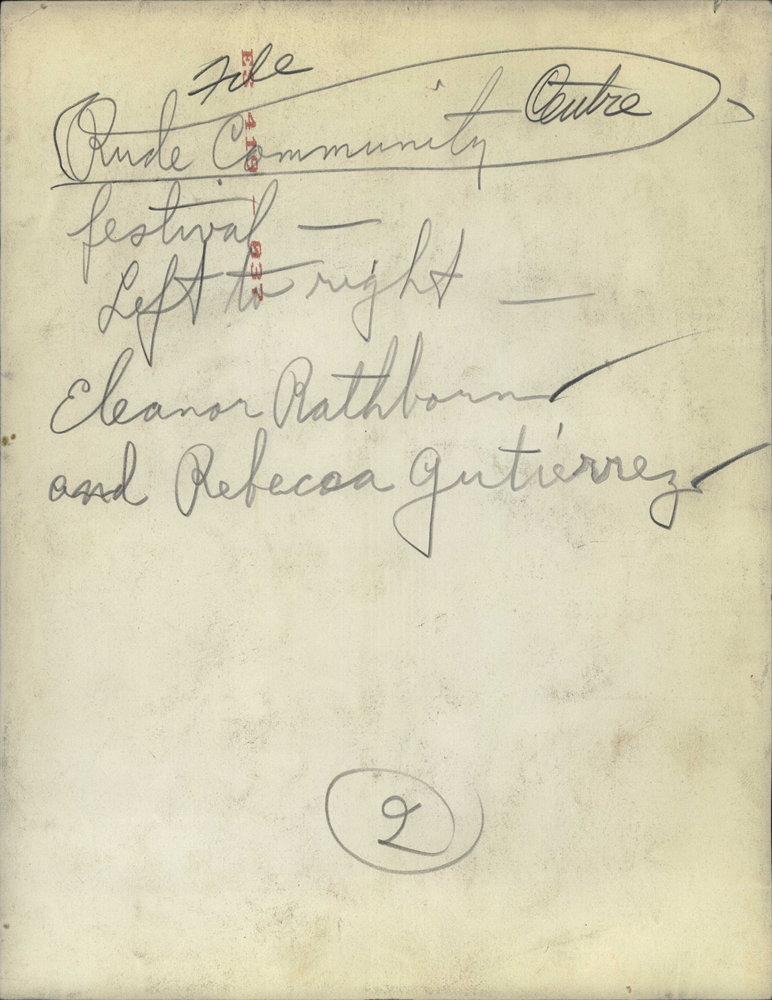 File
Rude Community Centre
festival —
Left to right —
Eleanor Rathborn
and Rebecca Gutiérrez
2